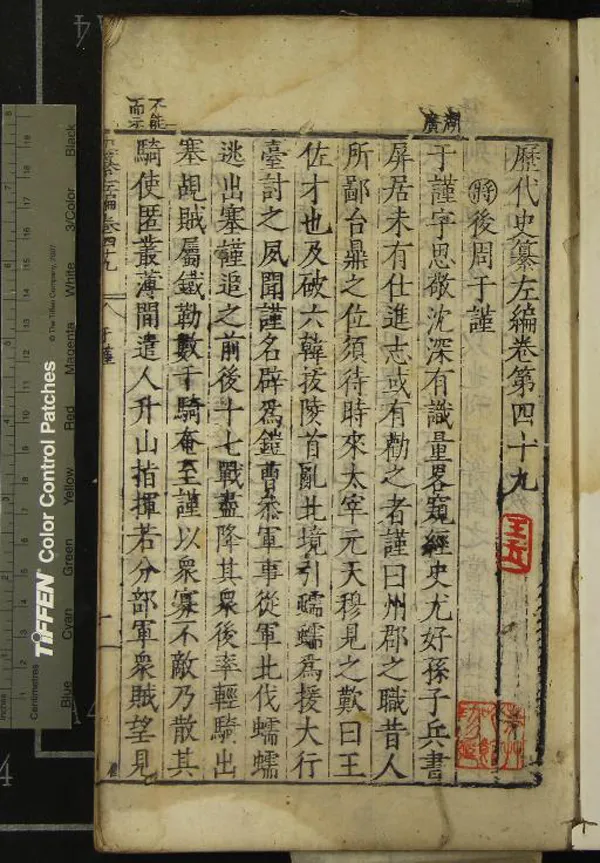 歷代史纂左編卷第四十九
將後周于謹
于謹字思敬沈深有識量畧窺經史尤好孫子兵書
屏居未有仕進志或有勸之者謹曰州郡之職昔人
所鄙台鼎之位須待時來太宰元天穆見之歎曰王
佐才也及破六韓拔陵首亂北境引蠕蠕為援大行
臺討之夙聞謹名辟為鎧曹叅軍事從軍北伐蠕蠕
逃出塞謹追之前後十七戰盡降其衆後率輕騎出
塞覘賊屬鐵勒數千騎奄至謹以衆寡不敵乃散其
騎使匿叢薄間遣人升山指揮若分部軍衆賊望見
湖廣
不能
卷四十九
于謹
Inches
Centimetres
TIFFEN Color Control Patches
© The Tiffen Company, 2007
Blue
Cyan
Green
Yellow
Red
Magenta
White
3/Color
Black